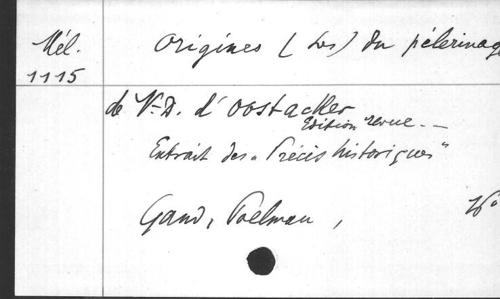 Mél. Origines (Les) du pélerinag
1115
de N.-D. d'Oostacker
Edition revue. -
Extrait des "Précis historiques"
Gand, Poelman,